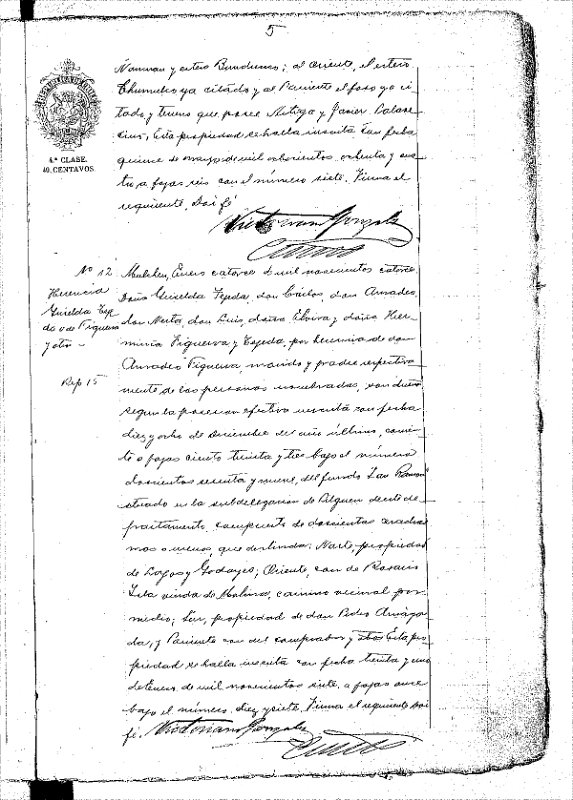 5
4.ª CLASE.
40 CENTAVOS.
Norman y estero Bureo; al Oriente, el estero
Chumulco ya citado y al Poniente el foso ya ci
tado y terreno que posee Astiga y Javier Palace
cius; Esta propiedad se halla inscrita con fecha
quince de mayo de mil ochocientos ochenta y cua
tro a fojas seis con el número siete. Firma el
requirente. Doi fé
Victoriano Gonzalez
No 12
Herencia
Griselda Tep
da v. de Figueroa
y otros
Rep 15
Mulchen, Enero catorce de mil novecientos catorce.
Doña Griselda Tejeda, don Carlos, don Amadeo,
don Nerto, don Luis, doña Elvira y doña Her
minia Figueroa y Tejeda, por herencia de don
Amadeo Figueroa, marido y padre respectiva
mente de las personas nombradas, son dueños
segun la posesion efectiva inscrita con fecha
diez y ocho de Diciembre del año último, corrien
te a fojas ciento treinta y tres bajo el número
doscientos sesenta y nueve, del fundo San Ramon
situado en la subdelegacion de Pilguen de este de
partamento, compuesto de doscientas cuadras
mas o menos, que deslinda: Norte, propiedad
de Lagos y Godoyes; Oriente, con de Rosario
Isla viuda de Molina, camino vecinal por
medio; Sur, propiedad de don Pedro Amaga
da, y Poniente con del comprador y otros. Esta pro
piedad se halla inscrita con fecha treinta y uno
de Enero de mil novecientos siete, a fojas once
bajo el número diez y siete. Firma el requirente. Doi
fé. Victoriano Gonzalez